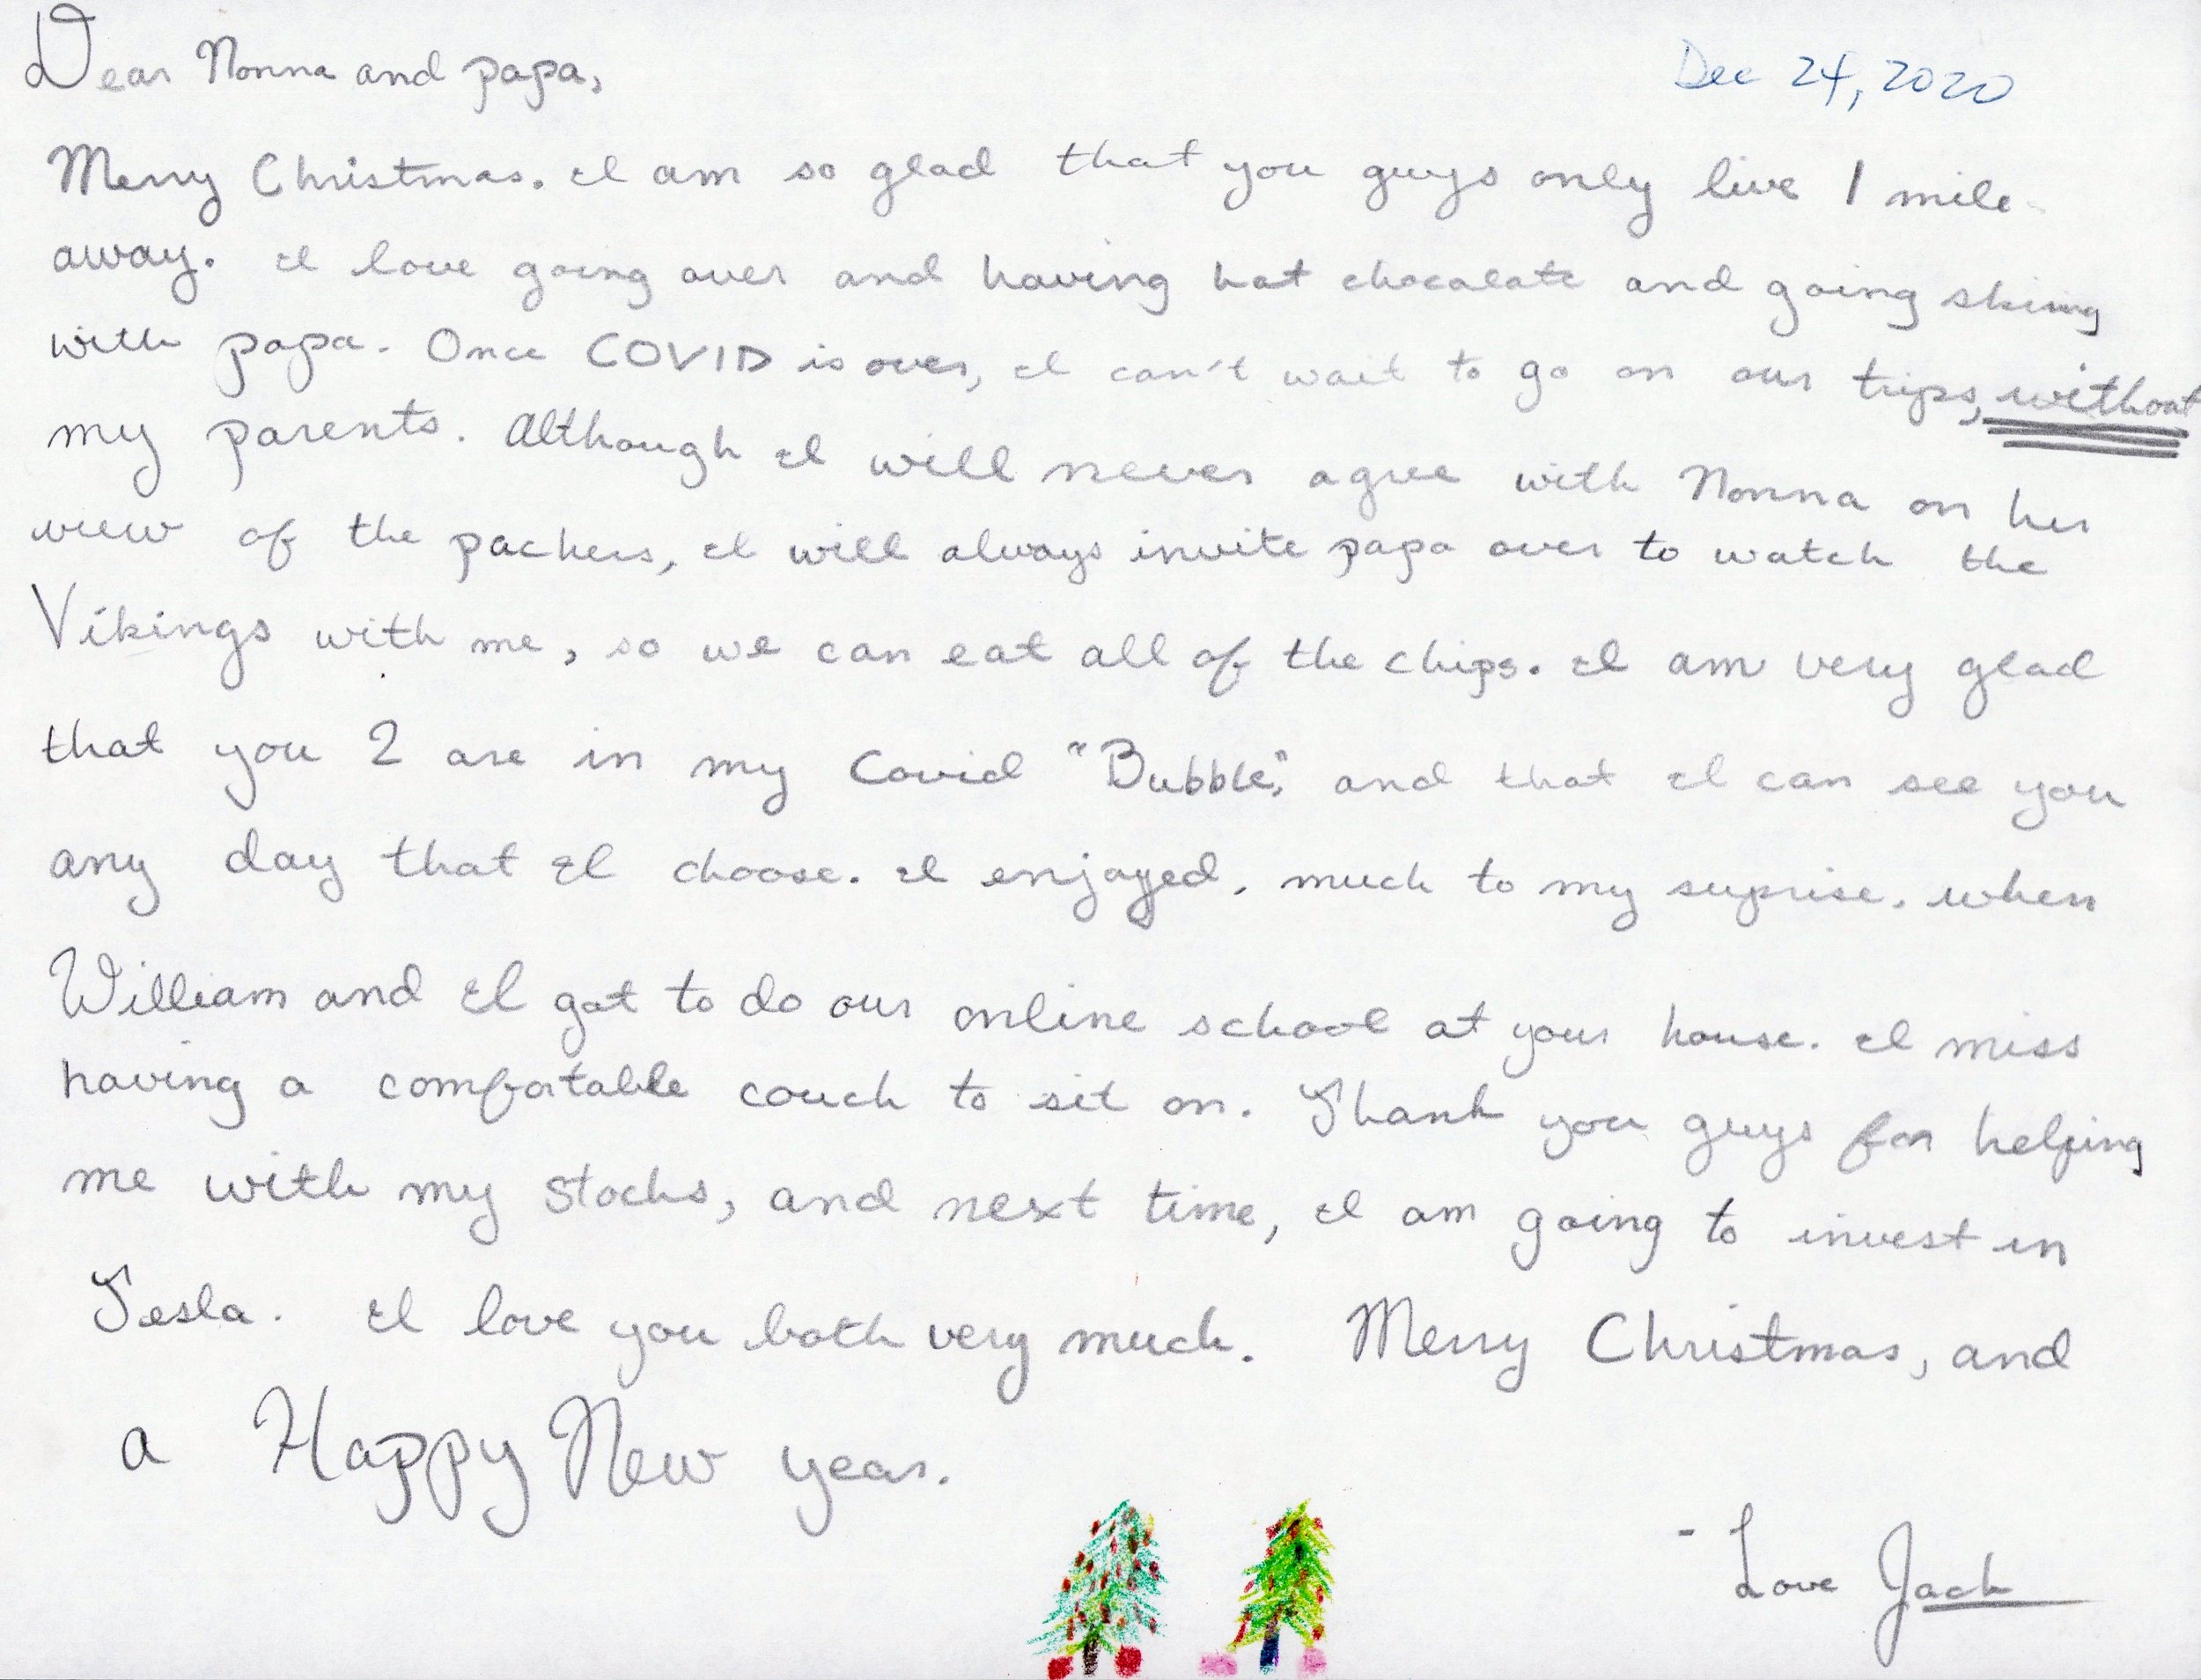 Dear Nonna and papa,
Dec 24, 2020
Merry Christmas. I am so glad that you guys only live 1 mile
away. I love going over and having hot chocalate and going skiing
with papa. Once COVID is over, I can't wait to go on our trips, without
my parents. Although I will never agree with Nonna on her
view of the packers, I will always invite papa over to watch the
Vikings with me, so we can eat all of the chips. I am very glad
that you 2 are in my Covid "Bubble," and that I can see you
any day that I choose. I enjoyed, much to my suprise, when
William and I got to do our online school at your house. I miss
having a comfortable couch to sit on. Thank you guys for helping
me with my stocks, and next time, I am going to invest in
Tesla. I love you both very much. Merry Christmas, and
a Happy New year.
- Love Jack